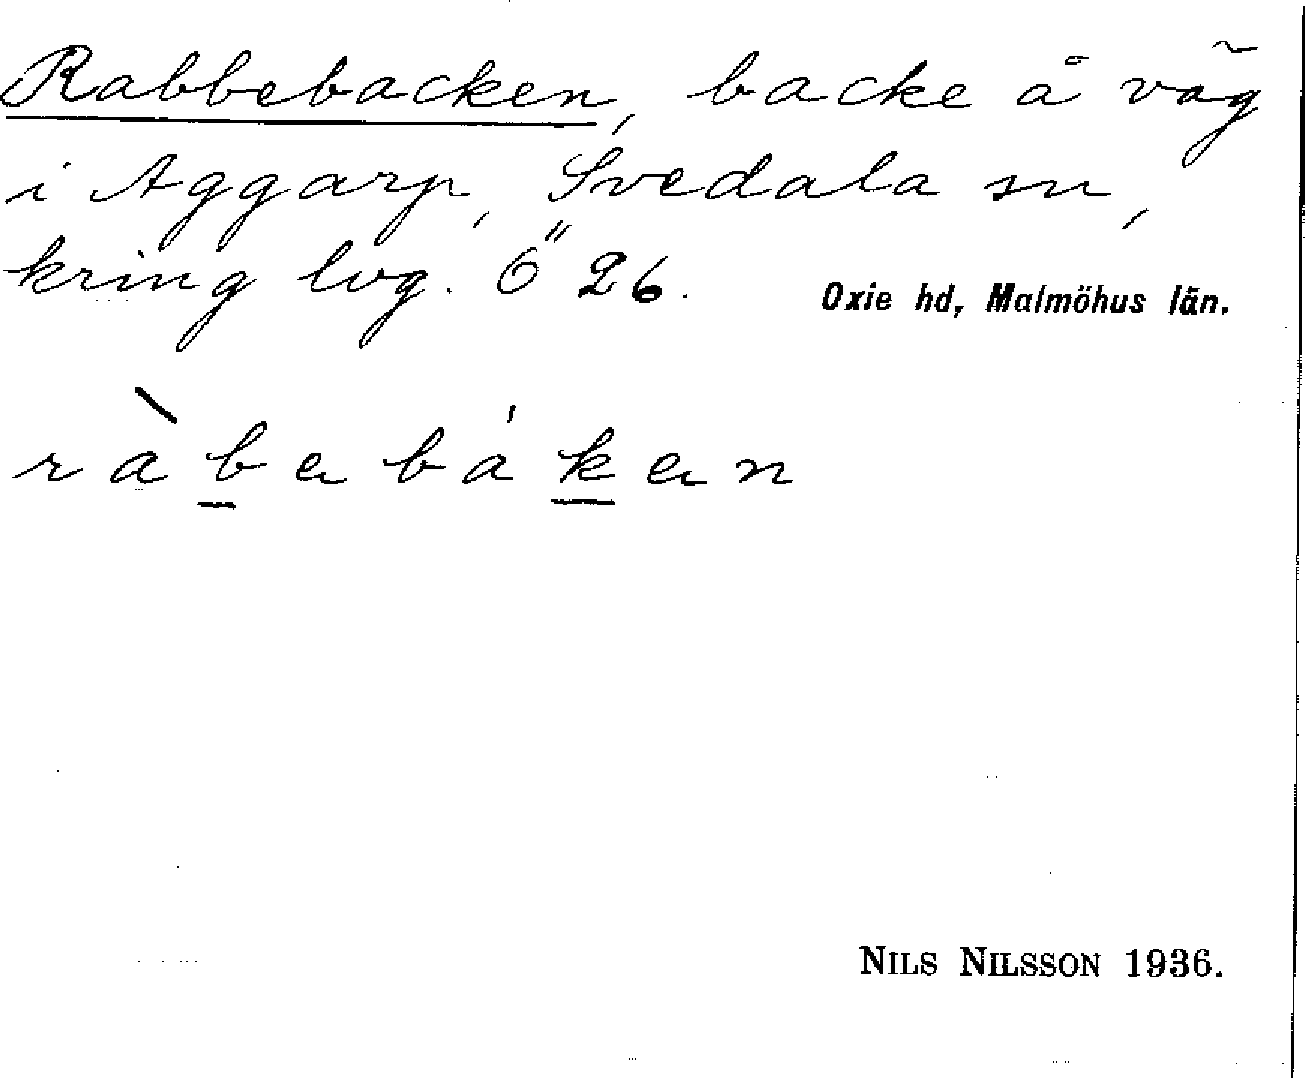 Rabbebacken, backe å väg
i Aggarp, Svedala sn,
kring lvg. Ö 26.
Oxie hd, Malmöhus län.
ràbebákен
NILS NILSSON 1936.